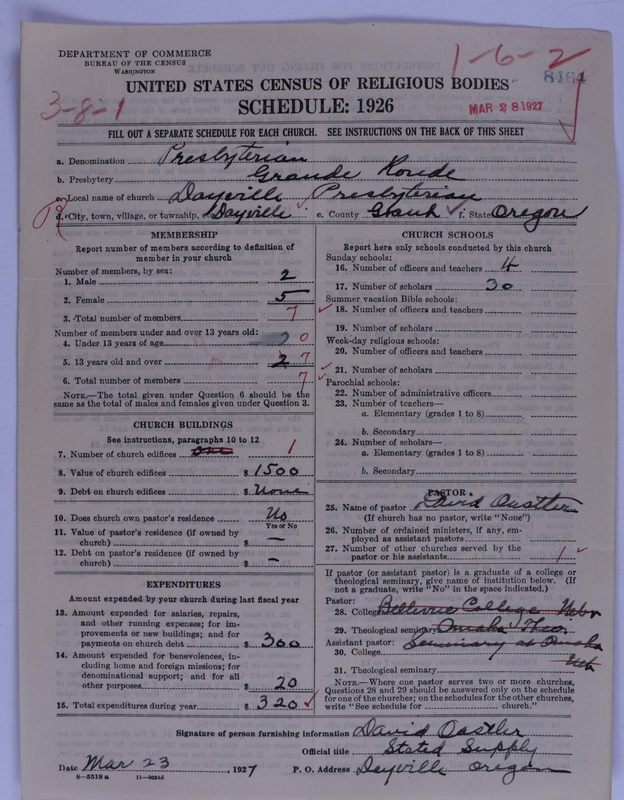 DEPARTMENT OF COMMERCE
BUREAU OF THE CENSUS
WASHINGTON
1-6-2
8464
UNITED STATES CENSUS OF RELIGIOUS BODIES
3-8-1
SCHEDULE: 1926
MAR 28 1927
FILL OUT A SEPARATE SCHEDULE FOR EACH CHURCH. SEE INSTRUCTIONS ON THE BACK OF THIS SHEET
a. Denomination Presbyterian
b. Presbytery Grande Ronde
c. Local name of church Dayville Presbyterian
R
d. City, town, village, or township, Dayville e. County Grant f. State Oregon
MEMBERSHIP
Report number of members according to definition of
member in your church
Number of members, by sex:
1. Male 2
2. Female 5
3. Total number of members 7
Number of members under and over 13 years old:
4. Under 13 years of age 0
5. 13 years old and over 7
6. Total number of members 7
NOTE.—The total given under Question 6 should be the
same as the total of males and females given under Question 3.
CHURCH BUILDINGS
See instructions, paragraphs 10 to 12
7. Number of church edifices one 1
8. Value of church edifices $ 1500
9. Debt on church edifices $ None
10. Does church own pastor's residence No
Yes or No
11. Value of pastor's residence (if owned by
church) $ —
12. Debt on pastor's residence (if owned by
church) $ —
EXPENDITURES
Amount expended by your church during last fiscal year
13. Amount expended for salaries, repairs,
and other running expenses; for im-
provements or new buildings; and for
payments on church debt $ 300
14. Amount expended for benevolences, in-
cluding home and foreign missions; for
denominational support; and for all
other purposes $ 20
15. Total expenditures during year $ 320
CHURCH SCHOOLS
Report here only schools conducted by this church
Sunday schools:
16. Number of officers and teachers 4
17. Number of scholars 30
Summer vacation Bible schools:
18. Number of officers and teachers
19. Number of scholars
Week-day religious schools:
20. Number of officers and teachers
21. Number of scholars
Parochial schools:
22. Number of administrative officers
23. Number of teachers—
a. Elementary (grades 1 to 8)
b. Secondary
24. Number of scholars—
a. Elementary (grades 1 to 8)
b. Secondary
PASTOR
25. Name of pastor David Oastler
(If church has no pastor, write "None")
26. Number of ordained ministers, if any, em-
ployed as assistant pastors
27. Number of other churches served by the
pastor or his assistants 1
If pastor (or assistant pastor) is a graduate of a college or
theological seminary, give name of institution below. (If
not a graduate, write "No" in the space indicated.)
Pastor:
28. College Bellevue College Nebr
29. Theological seminary Omaha Theo.
Assistant pastor: Seminary at Omaha
30. College
31. Theological seminary
NOTE.—Where one pastor serves two or more churches,
Questions 28 and 29 should be answered only on the schedule
for one of the churches; on the schedules for the other churches,
write "See schedule for church."
Signature of person furnishing information David Oastler
Official title Stated Supply
Date Mar 23, 1927 P. O. Address Dayville Oregon
8-5518 a